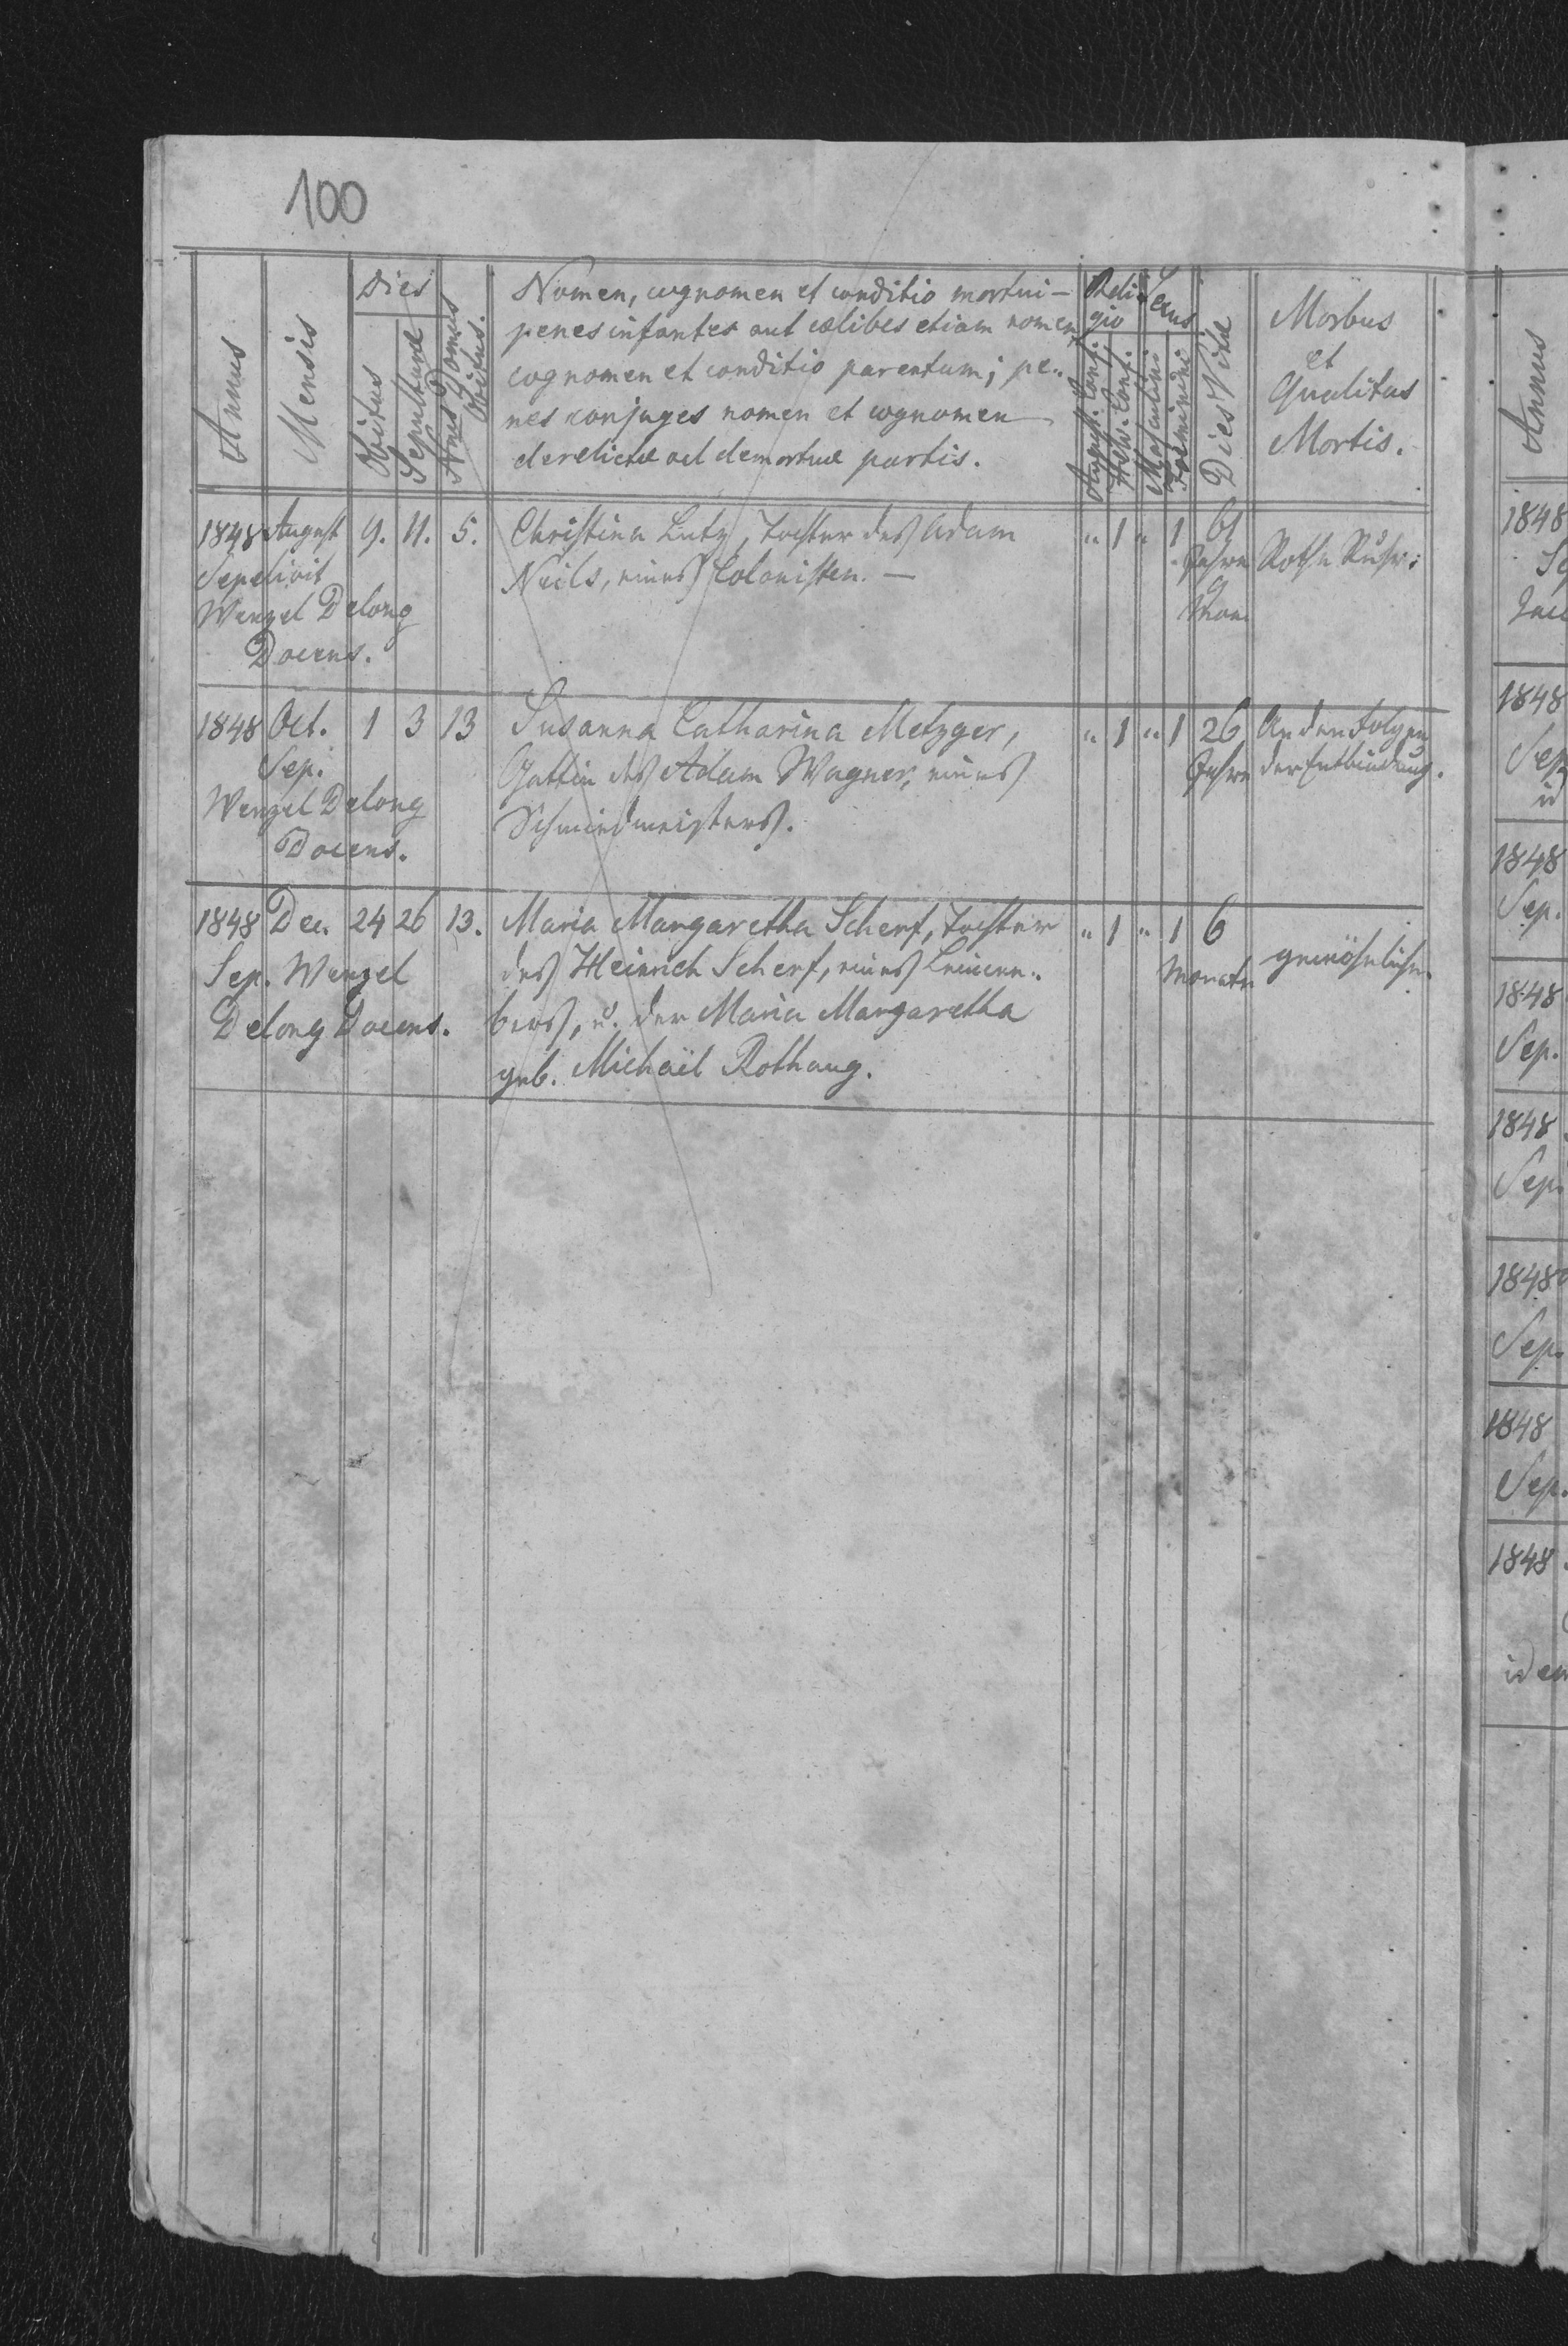 100
Annus
Mensis
Dies
Obitus
Sepulturæ
Nrus Domus
Obitus.
Nomen, cognomen et conditio mortui —
penes infantes aut cælibes etiam nomen,
cognomen et conditio parentum; pe„
nes conjuges nomen et cognomen
derelictæ vel demortuæ partis.
Reli„
gio
August. Conf.
Helv. Conf.
Sexus
Masculini
Foeminini
Dies Vitæ
Morbus
et
Qualitas
Mortis.
1848 August 9. 11. 5. Christina Lutz, Tochter des Adam „ 1 „ 1
Sepelivit Neils, eines Colonisten. — Jahre Rothe Ruhr.
Wenzel Delong 9 Mon.
Docens.
1848 Oct. 1 3 13 Susanna Catharina Metzger, „ 1 „ 1 26 An den Folgen
Sep. Gattin des Adam Wagner, eines Jahre der Entbindung.
Wenzel Delong Schmiedmeisters.
Docens.
1848 Dec. 24 26 13. Maria Margaretha Scherf, Tochter „ 1 „ 1 6
Sep. Wenzel des Heinrich Scherf, eines Leinwe„ Monate gewöhnliche.
Delong Docens. bers, u. der Maria Margaretha
geb. Michaël Rothaug.
Annus
1848
1848
Sep.
1848
Sep.
1848
Sep.
1848
Sep.
1848
Sep.
1848
Sep.
1848